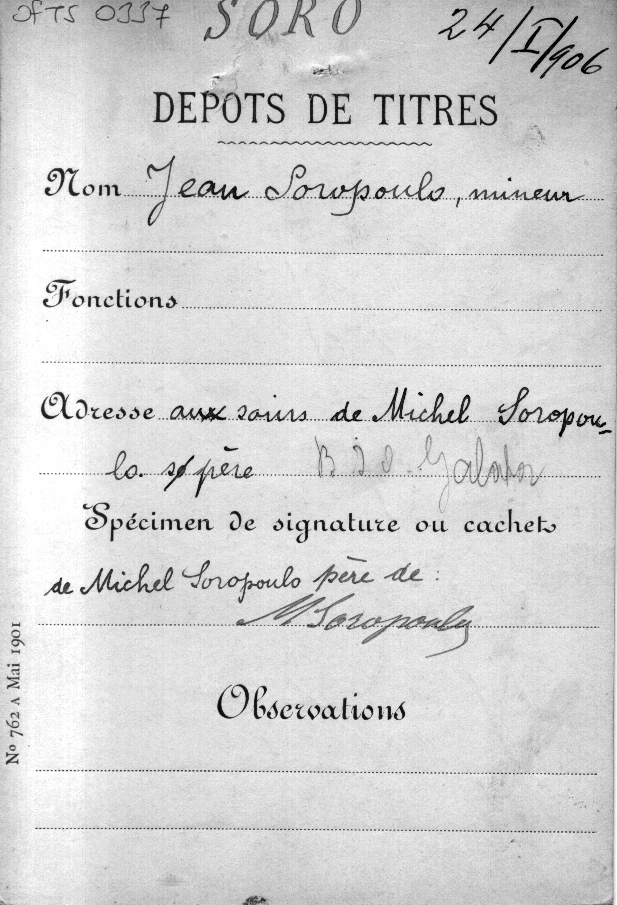 OFTS 0337
SORO
24/I/906
DEPOTS DE TITRES
Nom Jean Soropoulo, mineur
Fonctions
Adresse aux soins de Michel Soropou-
lo. s/ père Galata
Spécimen de signature ou cachet
de Michel Soropoulo père de :
MSoropoulo
Observations
No 762 A Mai 1901